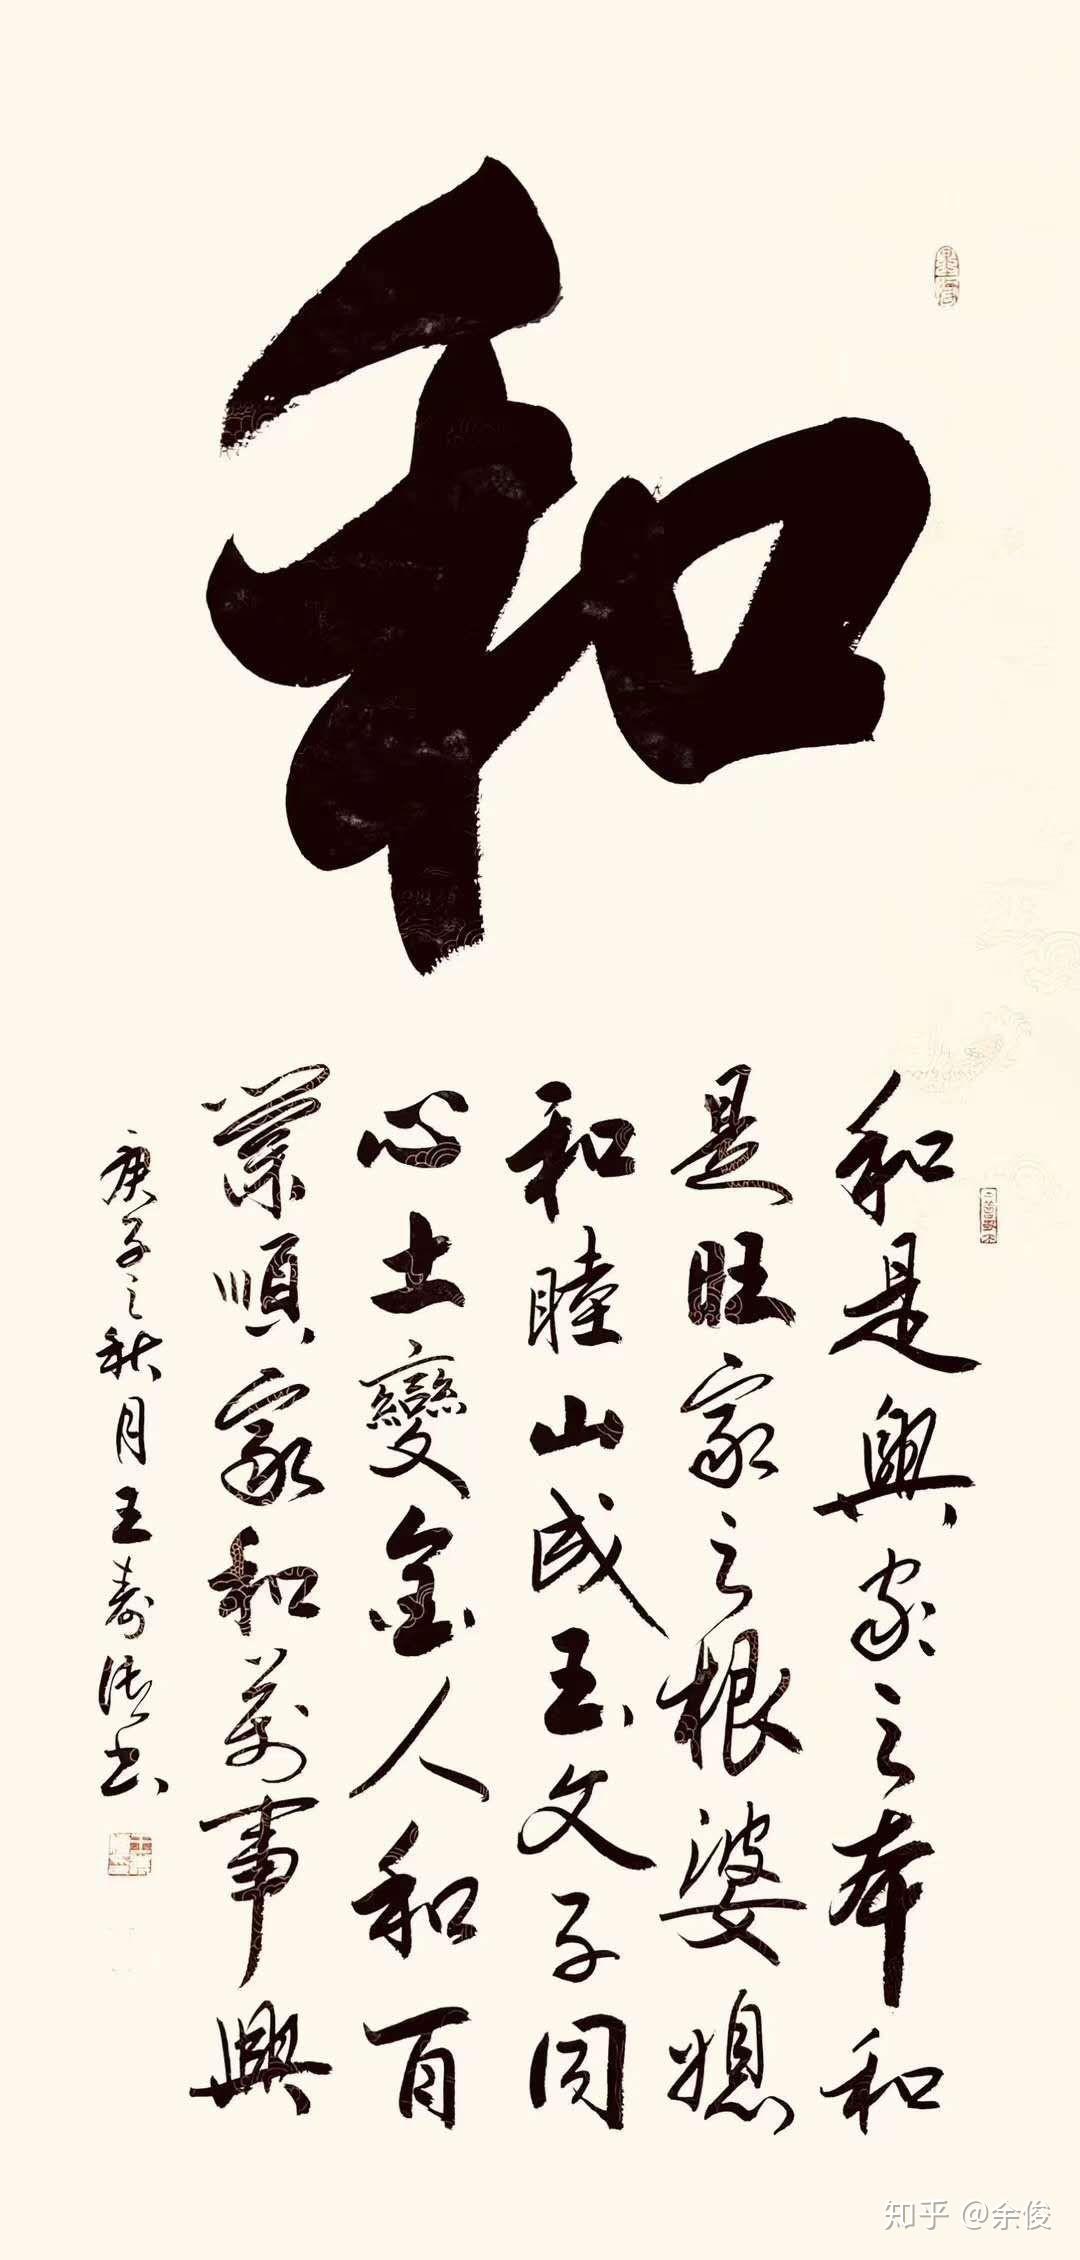 和
和是興家之本和
是旺家之根婆媳
和睦山成玉父子同
心土變金人和百
業順家和萬事興
庚子之秋月王寿书
知乎 @余俊